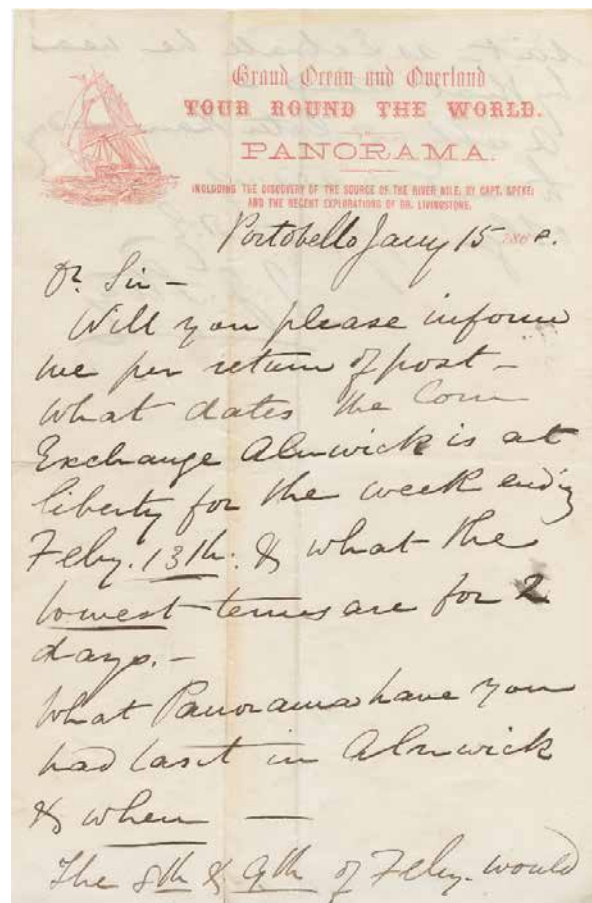 Grand Ocean and Overland
TOUR ROUND THE WORLD.
PANORAMA.
INCLUDING THE DISCOVERY OF THE SOURCE OF THE RIVER NILE, BY CAPT. SPEKE;
AND THE RECENT EXPLORATIONS OF DR. LIVINGSTONE.
Portobello Jany 15 186
Dr. Sir —
Will you please inform
me per return of post —
what dates the Corn
Exchange Alnwick is at
liberty for the week end'g
Feby. 13th. & what the
lowest terms are for 2
days. —
What Panorama have you
had last in Alnwick
& when —
The 8th & 9th of Feby. would